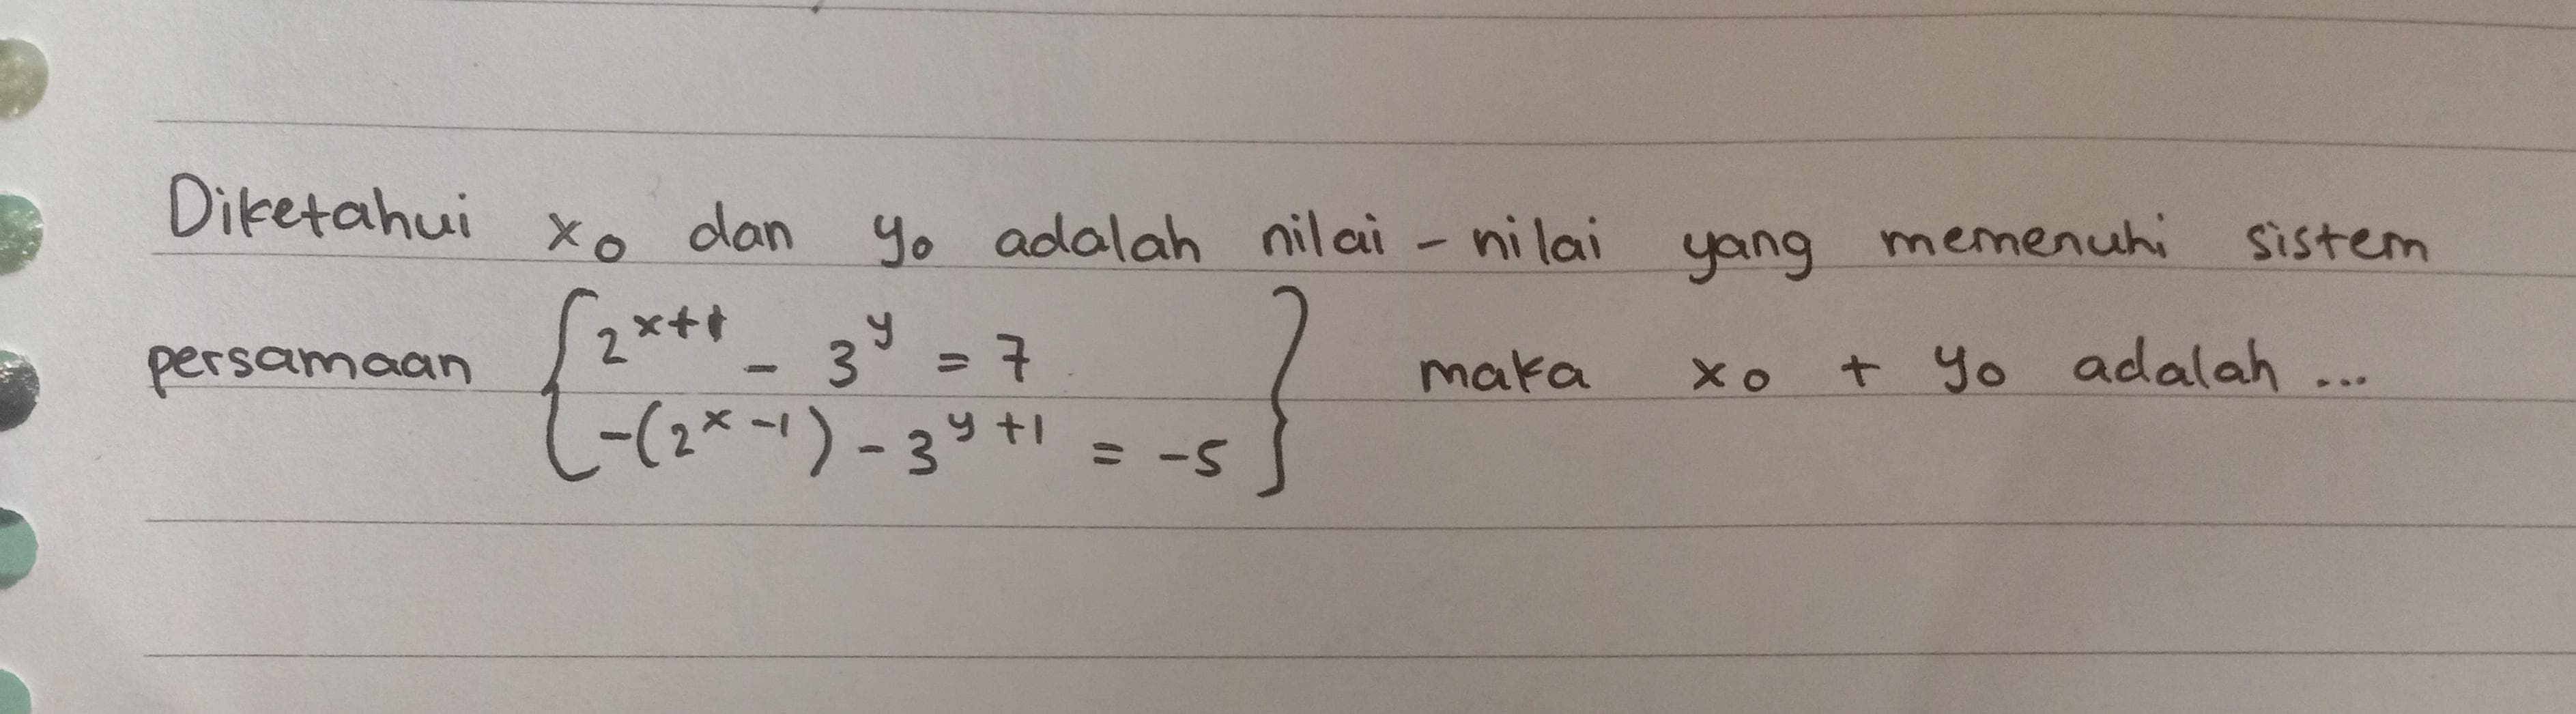 Diketahui x₀ dan y₀ adalah nilai - nilai yang memenuhi sistem
persamaan { 2^(x+1) - 3^y = 7 } maka x₀ + y₀ adalah ...
-(2^(x-1)) - 3^(y+1) = -5